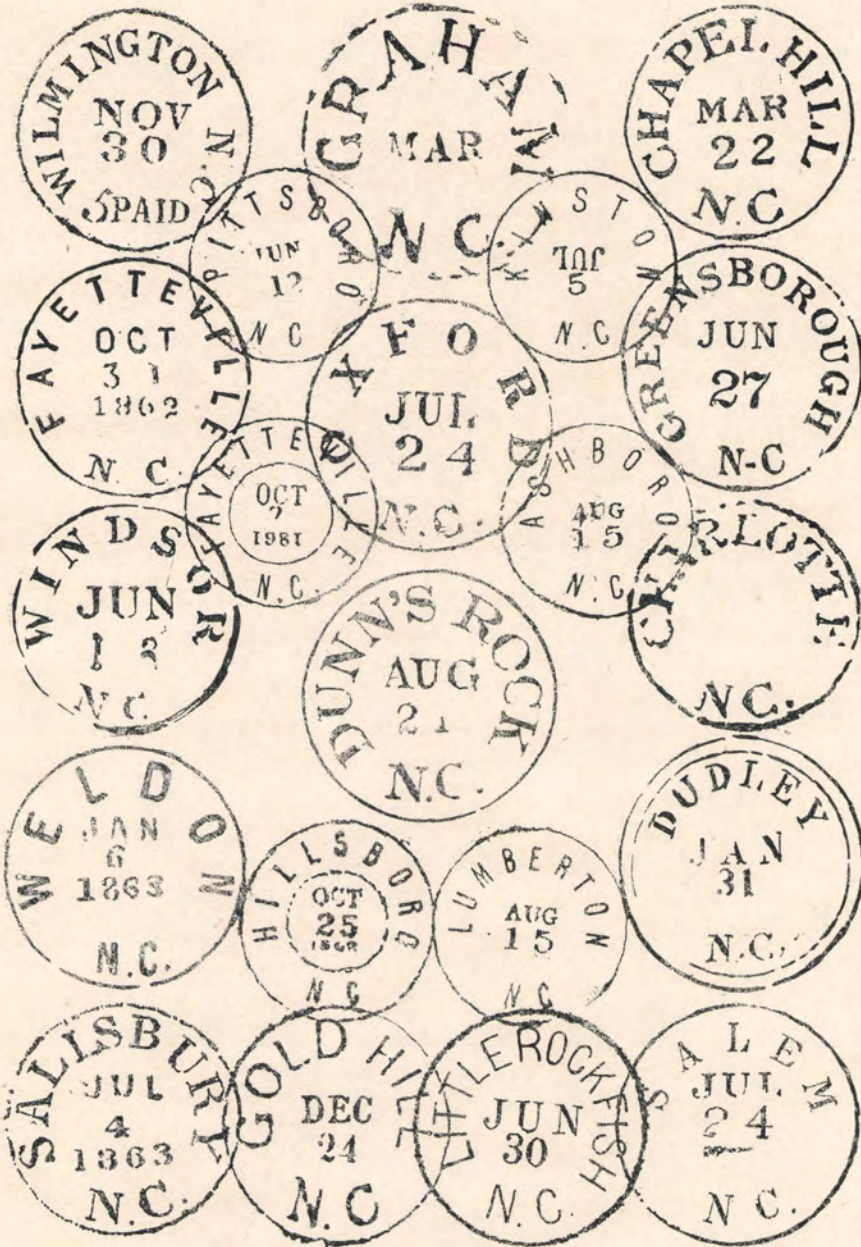 WILMINGTON N.C.
NOV
30
5 PAID
GRAHAM
MAR
N C.
CHAPEL HILL
MAR
22
N.C
PITTSBORO
JUN
12
N C
KINSTON
JUL
5
N.C
FAYETTEVILLE
OCT
31
1862
N. C.
OXFORD
JUL
24
N.C.
GREENSBOROUGH
JUN
27
N-C
FAYETTEVILLE
OCT
7
1981
N.C.
ASHBORO
AUG
15
N.C
WINDSOR
JUN
N C.
DUNN'S ROCK
AUG
21
N.C.
CHARLOTTE
N.C.
WELDON
JAN
6
1863
N.C.
HILLSBORO
OCT
25
N C
LUMBERTON
AUG
15
N C
DUDLEY
JAN
31
N.C.
SALISBURY
JUL
4
1863
N.C.
GOLD HILL
DEC
24
N.C
LITTLE ROCKFISH
JUN
30
N.C.
SALEM
JUL
24
N C.